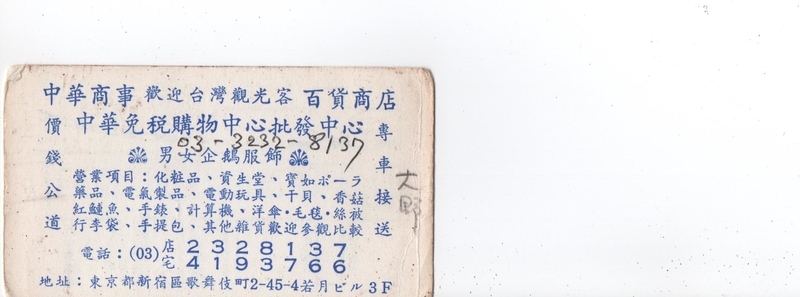 中華商事 歡迎台灣觀光客 百貨商店
中華免税購物中心批發中心
03-3232-8137
男女企鵝服飾
價錢公道
專車接送
營業項目：化粧品、資生堂、寶如ポーラ
藥品、電氣製品、電動玩具、干貝、香菇
紅鰱魚、手錶、計算機、洋傘·毛毯·絲被
行李袋、手提包、其他雜貨歡迎參觀比較
電話：(03) 店 2328137
宅 4193766
地址：東京都新宿區歌舞伎町2-45-4若月ビル 3F
大野